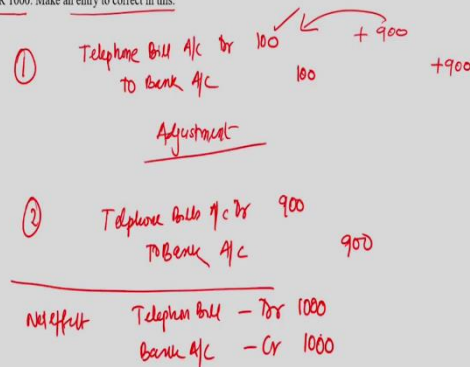 1000. Make an entry to correct in this.
① Telephone Bill A/c Dr 100 + 900
To Bank A/C 100 +900
Adjustment
② Telphone Bills A/c Dr 900
To Bank A/C 900
Net effect Telephon Bill - Dr 1000
Bank A/C - Cr 1000